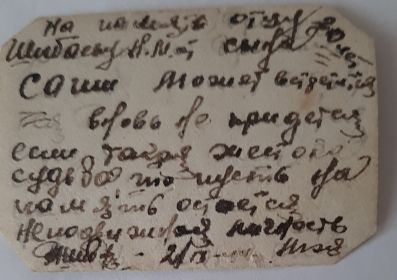 На память отцу
Шибаеву Н.М. от сына
Саши Может встретится
вновь не придется
если такая жестока
судьба, то пусть на
память остается
неподвижная личность
моя